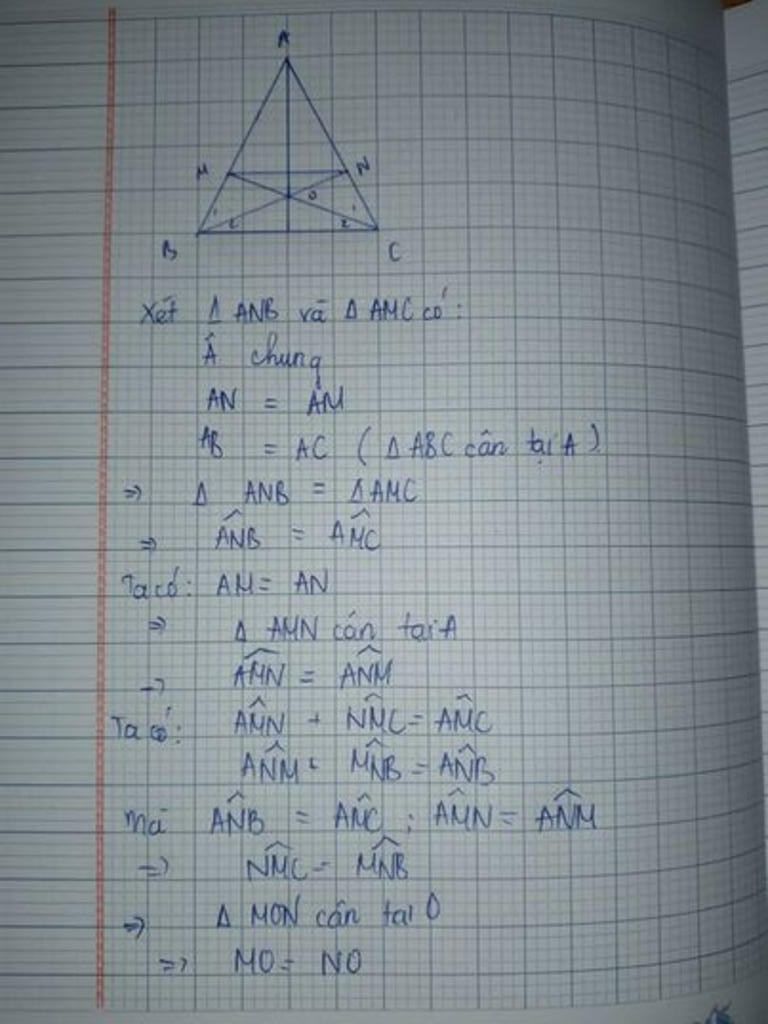 A
M N
O
1 1
2 2
B C
Xét Δ ANB và Δ AMC có:
Â chung
AN = AM
AB = AC (Δ ABC cân tại A)
=> Δ ANB = Δ AMC
=> AN̂B = AM̂C
Ta có: AM = AN
=> Δ AMN cân tại A
=> AM̂N = AN̂M
Ta có: AM̂N + NM̂C = AM̂C
AN̂M + MN̂B = AN̂B
mà AN̂B = AM̂C ; AM̂N = AN̂M
=> NM̂C = MN̂B
=> Δ MON cân tại O
=> MO = NO